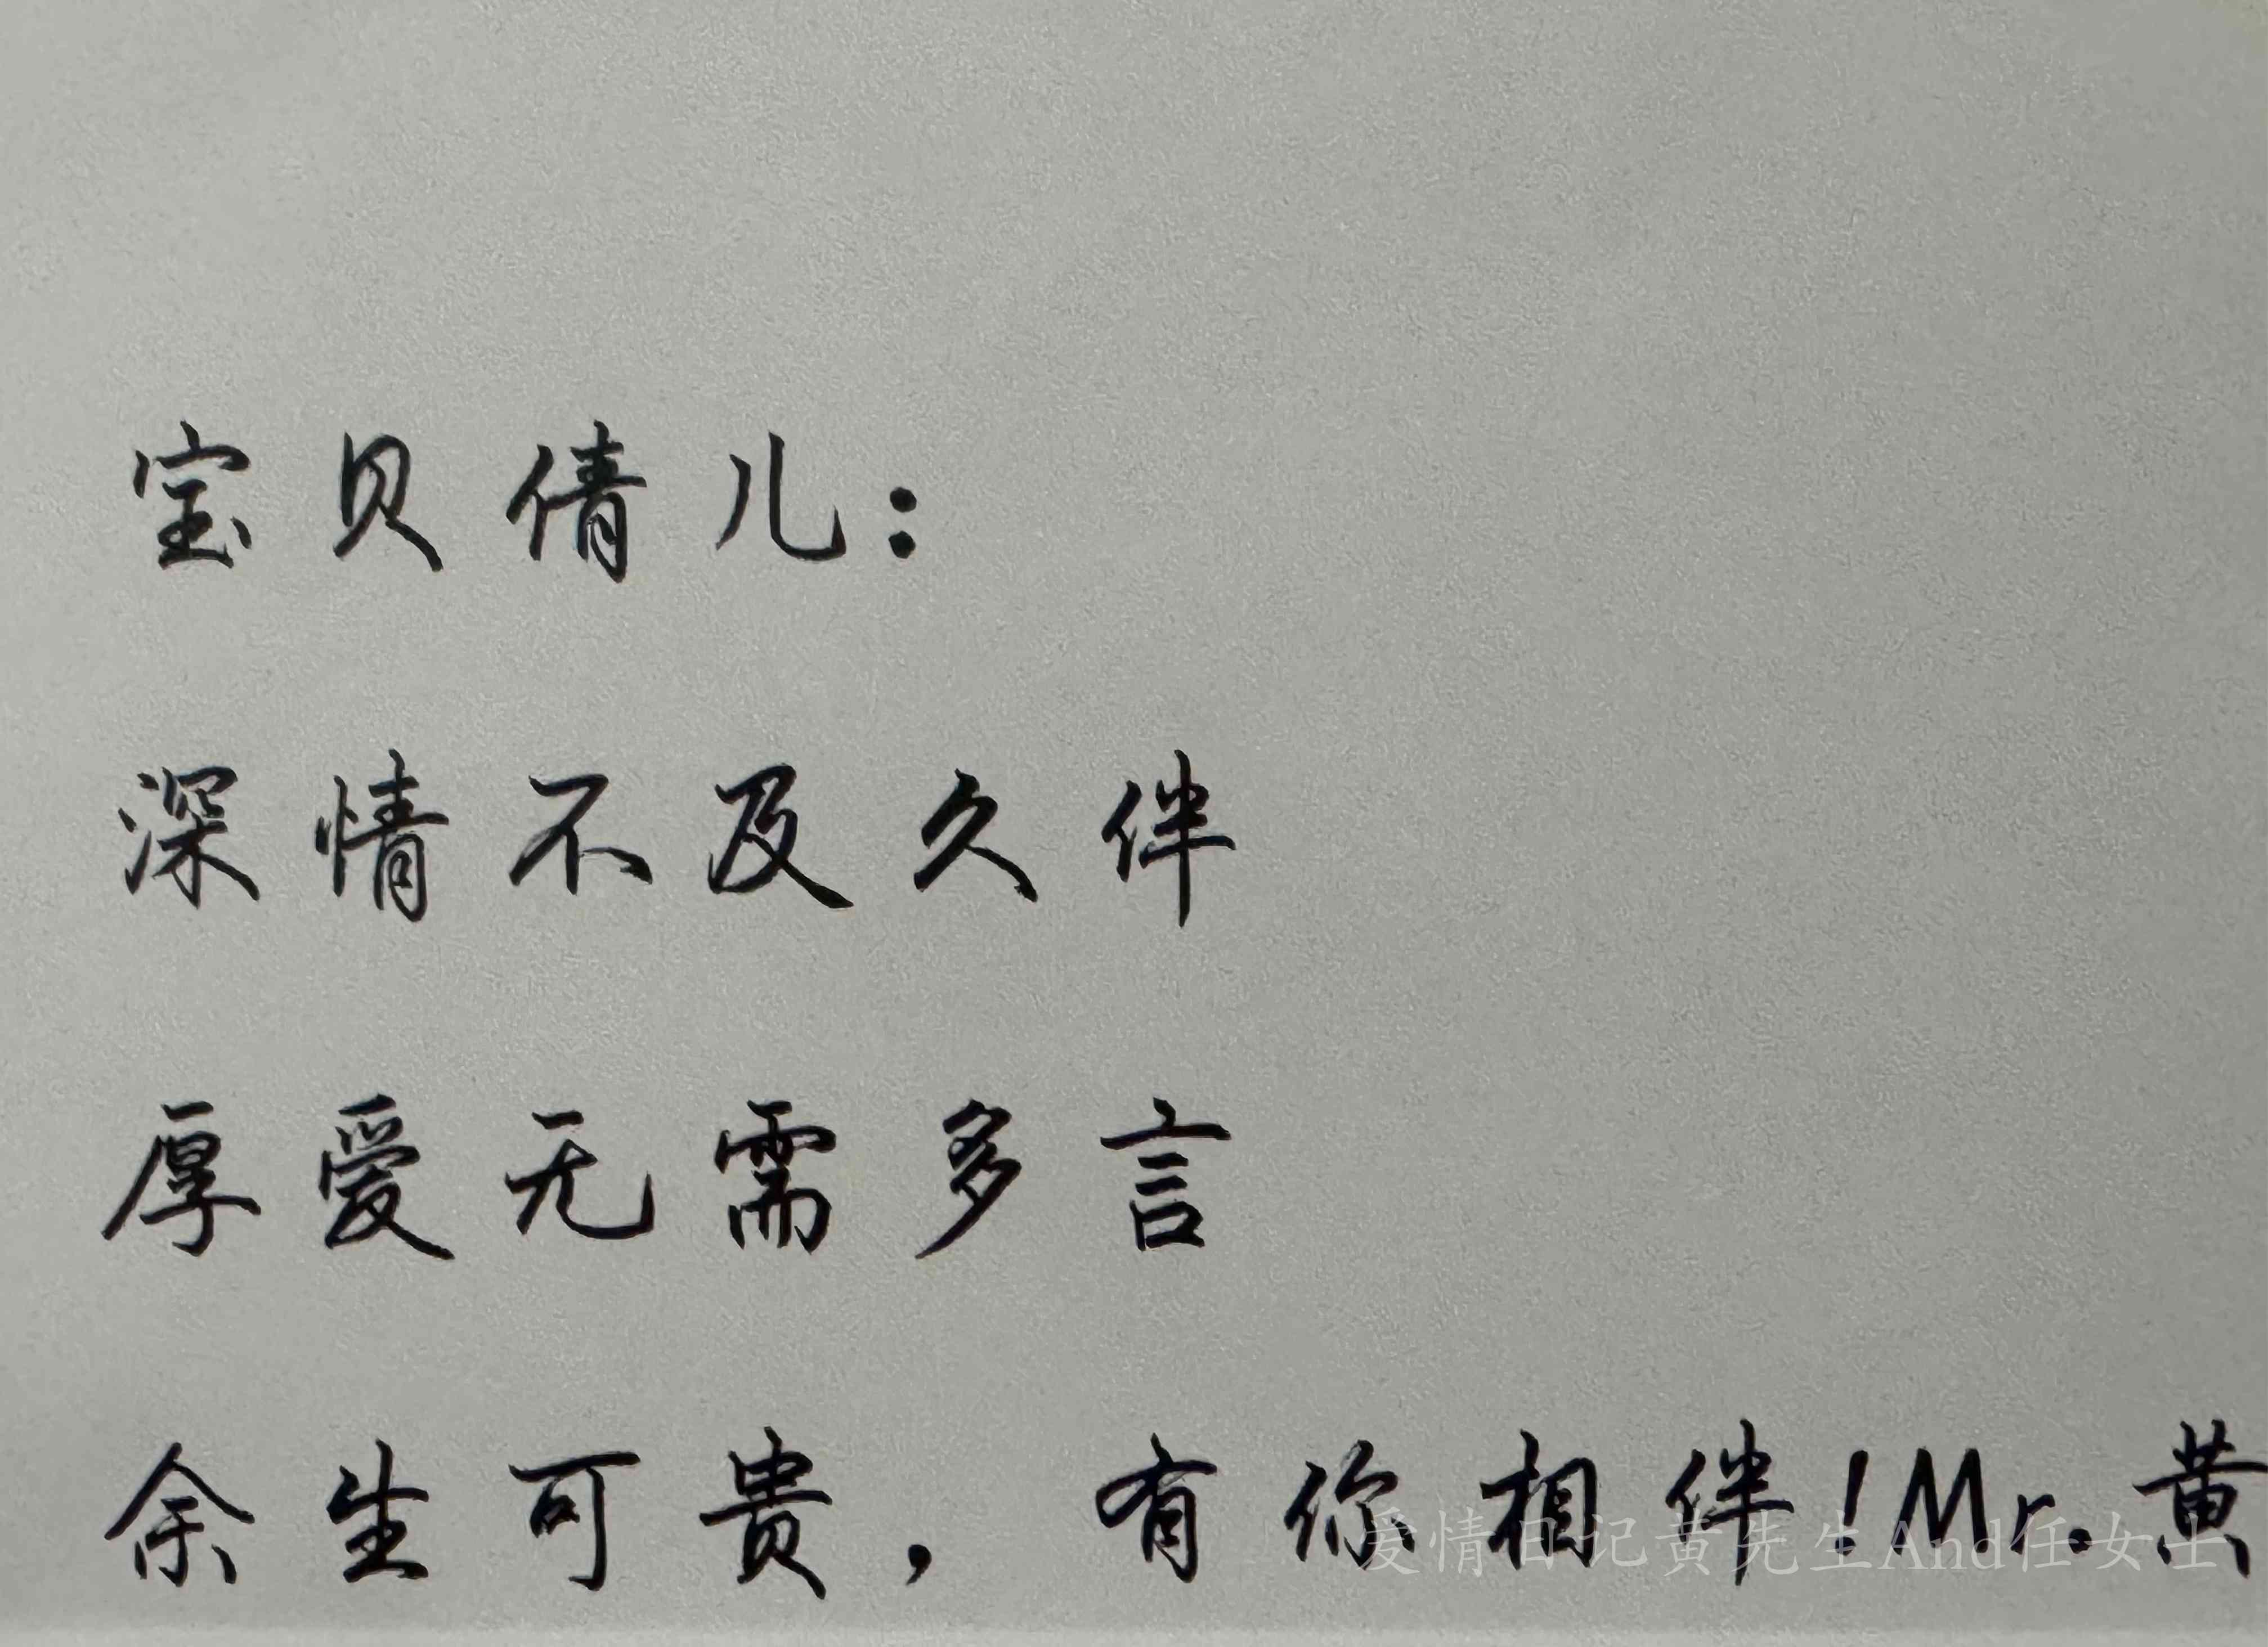 宝贝倩儿：
深情不及久伴
厚爱无需多言
余生可贵，有你相伴！Mr.黄
爱情日记黄先生And任女士